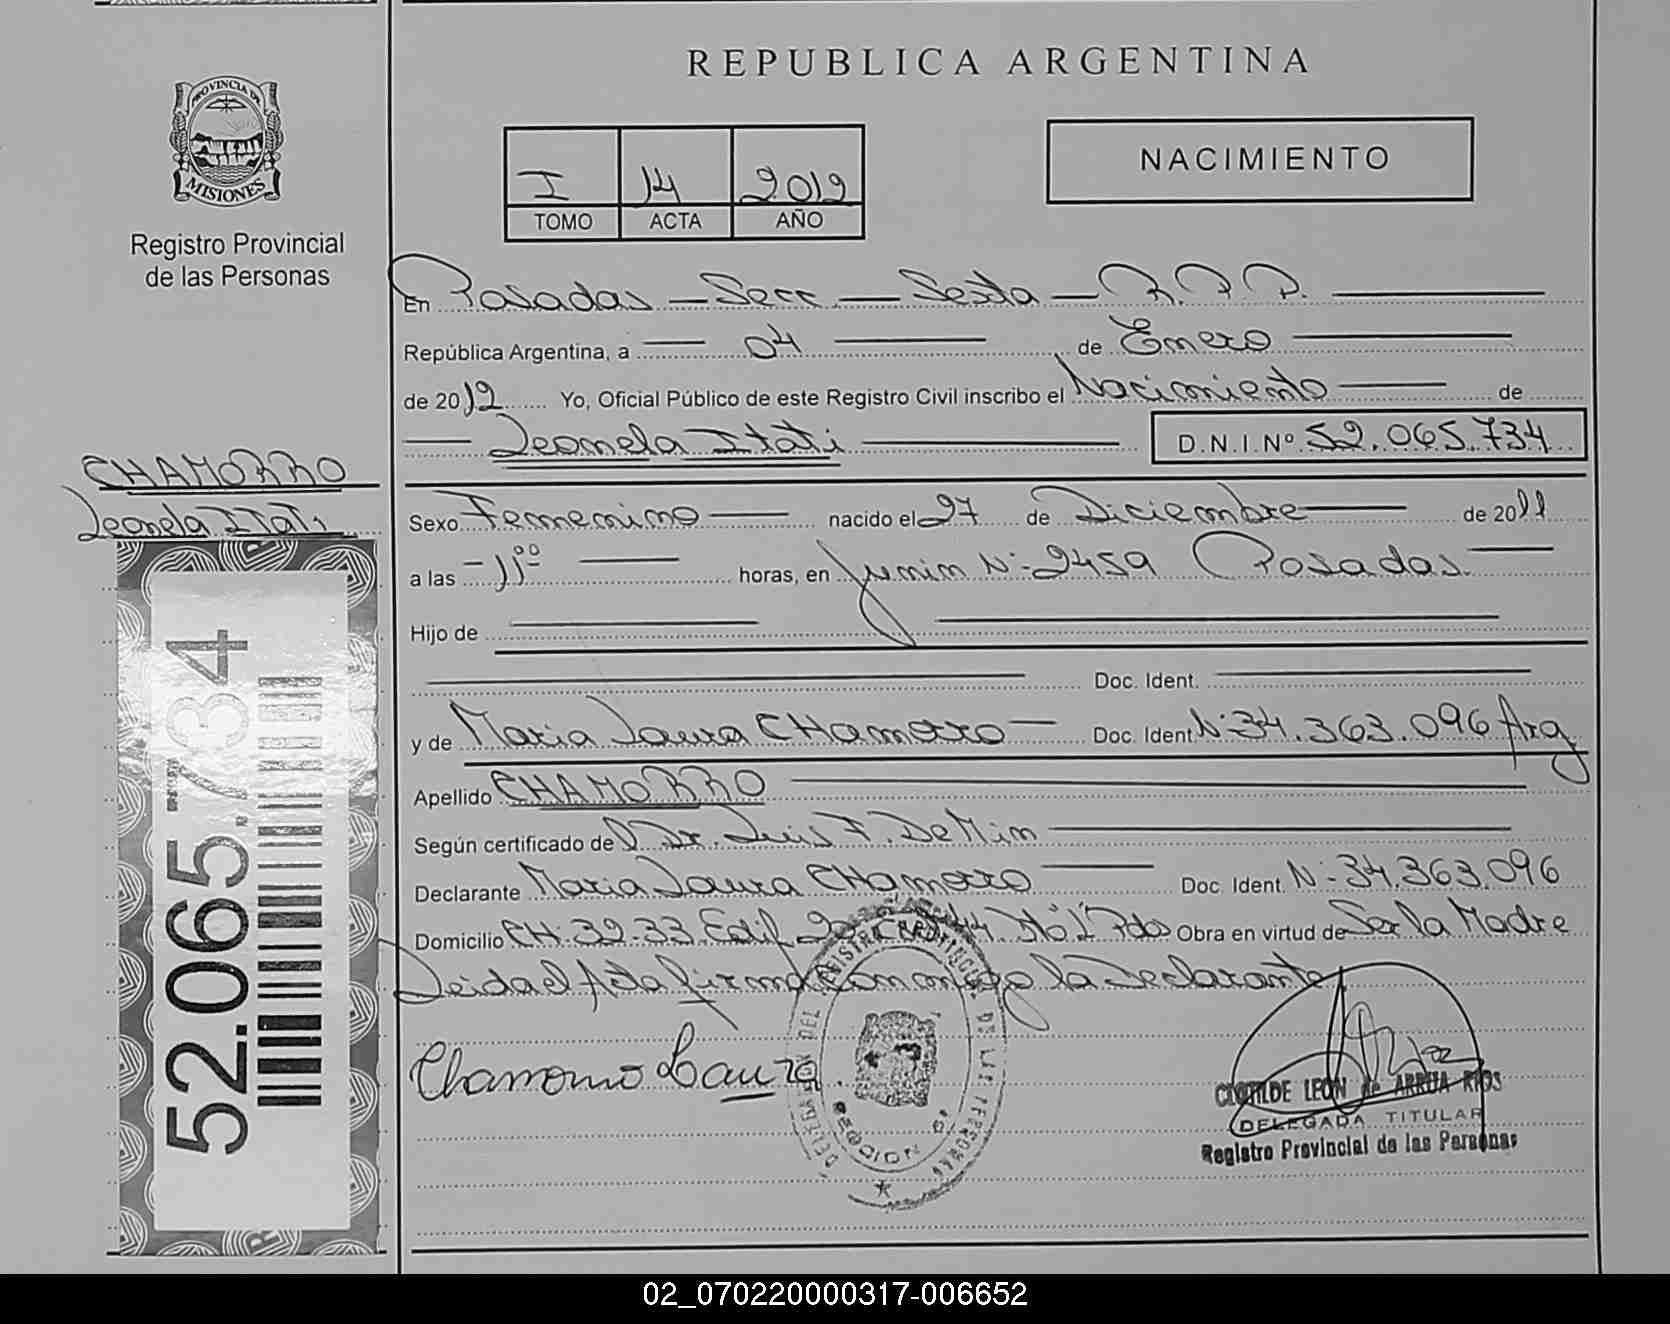 REPUBLICA ARGENTINA
PROVINCIA DE
MISIONES
Registro Provincial
de las Personas
I 14 2012
TOMO ACTA AÑO
NACIMIENTO
En Posadas - Secc - Sexta - R.P.P.
República Argentina, a 04 de Enero
de 2012 Yo, Oficial Público de este Registro Civil inscribo el Nacimiento de
Leonela Itati D.N.I.Nº 52.065.734
CHAMORRO
Leonela Itati
Sexo Femenino nacido el 27 de Diciembre de 2011
a las 11 00 horas, en Junin Nº 2459 Posadas
Hijo de
Doc. Ident.
y de Maria Laura CHamorro Doc. Ident. Nº 34.363.096 Arg
Apellido CHAMORRO
Según certificado de Dr. Luis F. De Mim
Declarante Maria Laura CHamorro Doc. Ident. Nº 34.363.096
Domicilio CH. 32-33 Edif 20 Pdas Obra en virtud de Ser la Madre
Leida el Acta firma conmigo la Declarante
Chamorro Laura
52.065.734
DELEGACION DEL REGISTRO PROVINCIAL DE LAS PERSONAS
SECCION 6ª
CLOTILDE LEON de ARRUA RIOS
DELEGADA TITULAR
Registro Provincial de las Personas
02_070220000317-006652